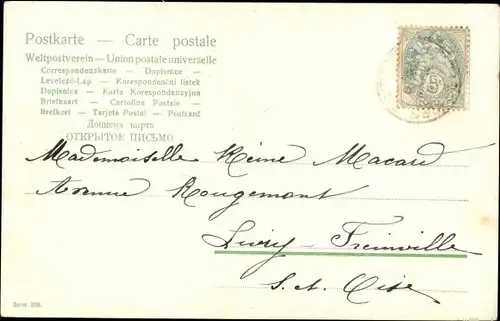 Postkarte — Carte postale
Weltpostverein — Union postale universelle
Correspondenzkarte — Dopisnice —
Levelező-Lap — Korespondenční listek
Dopisnica — Karta Korespondenzyjna
Briefkaart — Cartolina Postale —
Brefkort — Tarjeta Postal — Postcard
Дописна карта
ОТКРЫТОЕ ПИСЬМО
5
Mademoiselle Reine Macard
Avenue Rougemont
Livry-Freinville
S. et Oise